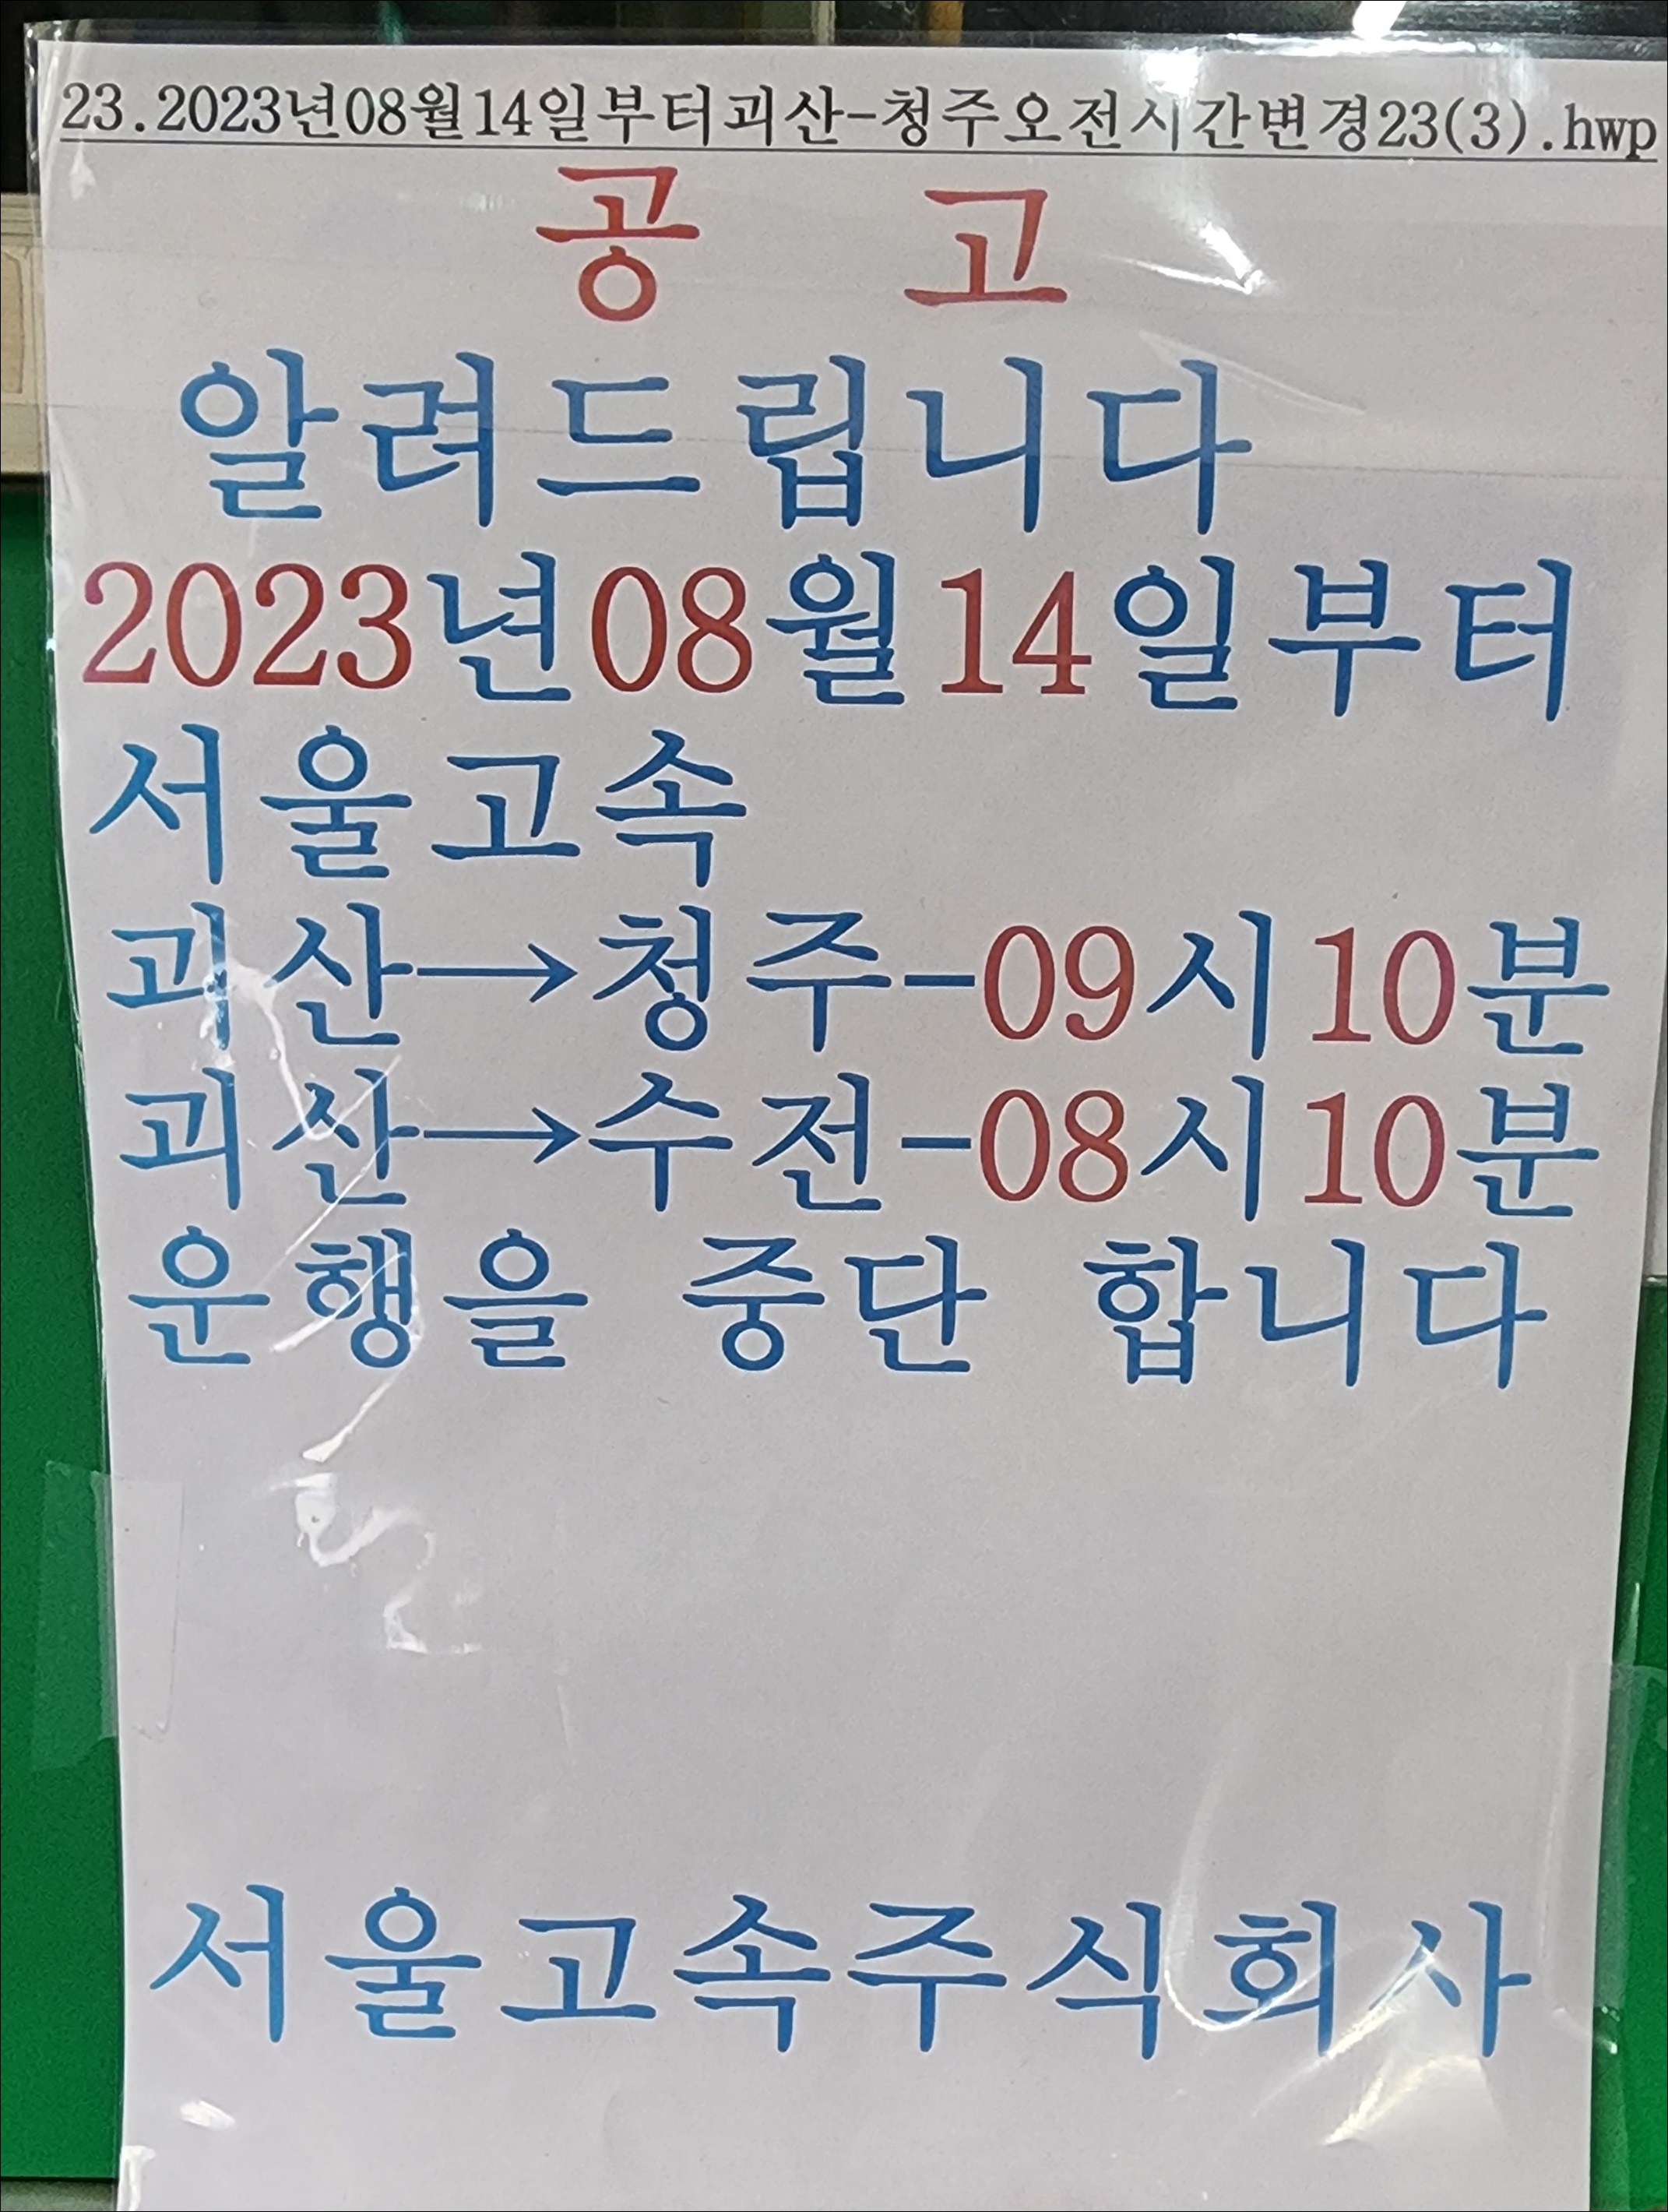 23.2023년08월14일부터괴산-청주오전시간변경23(3).hwp
공 고
알려드립니다
2023년08월14일부터
서울고속
괴산→청주-09시10분
괴산→수전-08시10분
운행을 중단 합니다
서울고속주식회사